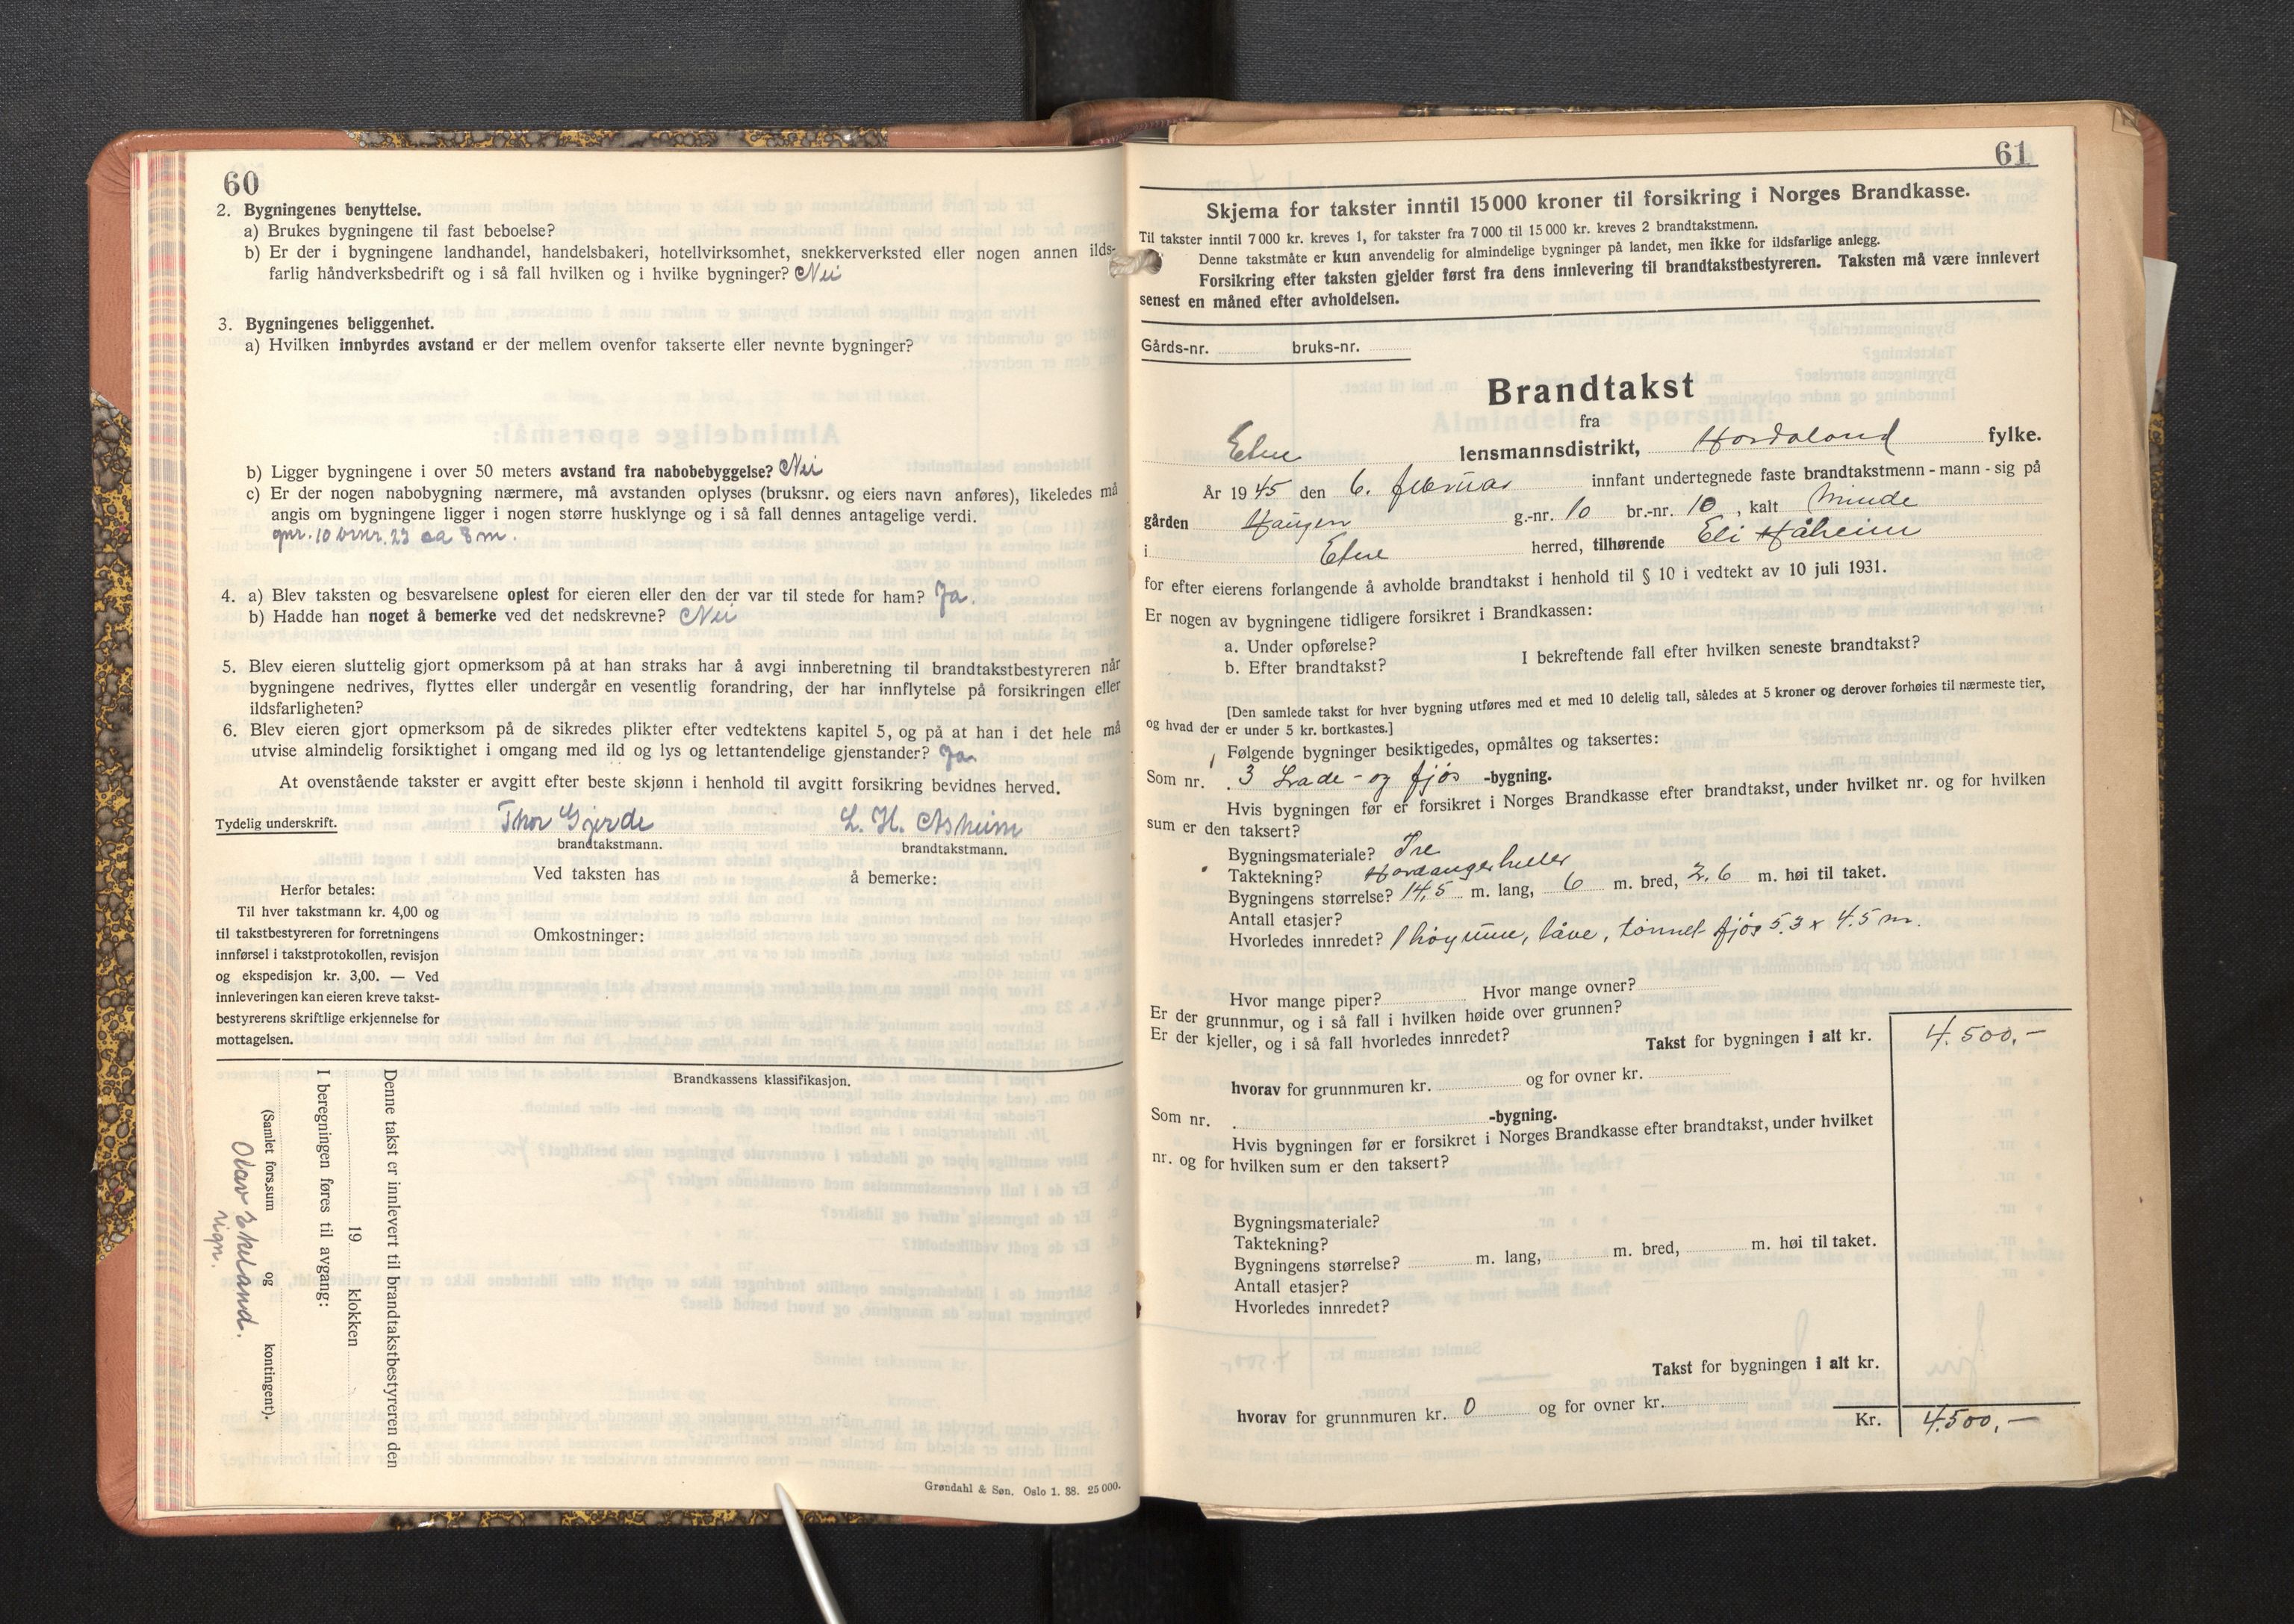 60
2. Bygningenes benyttelse.
a) Brukes bygningene til fast beboelse?
b) Er der i bygningene landhandel, handelsbakeri, hotellvirksomhet, snekkerverksted eller nogen annen ilds-
farlig håndverksbedrift og i så fall hvilken og i hvilke bygninger? Nei
3. Bygningenes beliggenhet.
a) Hvilken innbyrdes avstand er der mellem ovenfor takserte eller nevnte bygninger?
b) Ligger bygningene i over 50 meters avstand fra nabobebyggelse? Nei
c) Er der nogen nabobygning nærmere, må avstanden oplyses (bruksnr. og eiers navn anføres), likeledes må
angis om bygningene ligger i nogen større husklynge og i så fall dennes antagelige verdi.
gnr. 10 brnr. 23 ca 8 m.
4. a) Blev taksten og besvarelsene oplest for eieren eller den der var til stede for ham? Ja.
b) Hadde han noget å bemerke ved det nedskrevne? Nei
5. Blev eieren sluttelig gjort opmerksom på at han straks har å avgi innberetning til brandtakstbestyreren når
bygningene nedrives, flyttes eller undergår en vesentlig forandring, der har innflytelse på forsikringen eller
ildsfarligheten?
6. Blev eieren gjort opmerksom på de sikredes plikter efter vedtektens kapitel 5, og på at han i det hele må
utvise almindelig forsiktighet i omgang med ild og lys og lettantendelige gjenstander? Ja.
At ovenstående takster er avgitt efter beste skjønn i henhold til avgitt forsikring bevidnes herved.
Tydelig underskrift. Thor Gjerde L. H. Asheim
brandtakstmann. brandtakstmann.
Ved taksten has å bemerke:
Herfor betales:
Til hver takstmann kr. 4,00 og
til takstbestyreren for forretningens
innførsel i takstprotokollen, revisjon
og ekspedisjon kr. 3,00. — Ved
innleveringen kan eieren kreve takst-
bestyrerens skriftlige erkjennelse for
mottagelsen.
Omkostninger:
Brandkassens klassifikasjon.
Denne takst er innlevert til brandtakstbestyreren den
19 klokken
I beregningen føres til avgang:
(Samlet fors.sum og kontingent).
Olav Skeland.
sign.
Grøndahl & Søn. Oslo 1. 38. 25 000.
61
Skjema for takster inntil 15 000 kroner til forsikring i Norges Brandkasse.
Til takster inntil 7 000 kr. kreves 1, for takster fra 7 000 til 15 000 kr. kreves 2 brandtakstmenn.
Denne takstmåte er kun anvendelig for almindelige bygninger på landet, men ikke for ildsfarlige anlegg.
Forsikring efter taksten gjelder først fra dens innlevering til brandtakstbestyreren. Taksten må være innlevert
senest en måned efter avholdelsen.
Gårds-nr. bruks-nr.
Brandtakst
fra
Etne lensmannsdistrikt, Hordaland fylke.
År 1945 den 6. februar innfant undertegnede faste brandtakstmenn - mann - sig på
gården Haugen g.-nr. 10 br.-nr. 10, kalt Minde
i Etne herred, tilhørende Eli Håheim
for efter eierens forlangende å avholde brandtakst i henhold til § 10 i vedtekt av 10 juli 1931.
Er nogen av bygningene tidligere forsikret i Brandkassen:
a. Under opførelse?
b. Efter brandtakst? I bekreftende fall efter hvilken seneste brandtakst?
[Den samlede takst for hver bygning utføres med et med 10 delelig tall, således at 5 kroner og derover forhøies til nærmeste tier,
og hvad der er under 5 kr. bortkastes.]
Følgende bygninger besiktigedes, opmåltes og taksertes:
Som nr. 3 Lade- og fjøs -bygning.
Hvis bygningen før er forsikret i Norges Brandkasse efter brandtakst, under hvilket nr. og for hvilken
sum er den taksert?
Bygningsmateriale? Tre
Taktekning? Hardangerheller
Bygningens størrelse? 14,5 m. lang, 6 m. bred, 2,6 m. høi til taket.
Antall etasjer?
Hvorledes innredet? 1 høyrum, låve, tømret fjøs 5.3 x 4.5 m.
Hvor mange piper? Hvor mange ovner?
Er der grunnmur, og i så fall i hvilken høide over grunnen?
Er der kjeller, og i så fall hvorledes innredet?
Takst for bygningen i alt kr. 4.500,-
hvorav for grunnmuren kr. og for ovner kr.
Som nr. -bygning.
Hvis bygningen før er forsikret i Norges Brandkasse efter brandtakst, under hvilket
nr. og for hvilken sum er den taksert?
Bygningsmateriale?
Taktekning?
Bygningens størrelse? m. lang, m. bred, m. høi til taket.
Antall etasjer?
Hvorledes innredet?
Takst for bygningen i alt kr.
hvorav for grunnmuren kr. 0 og for ovner kr.
Kr. 4.500,-